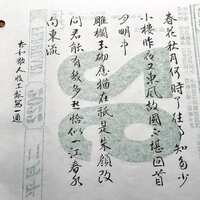 春花秋月何時了往事知多少
小樓昨夜又東風故國不堪回首
月明中
雕欄玉砌應猶在祇是朱顏改
問君能有幾多愁恰似一江春水
向東流
第一通